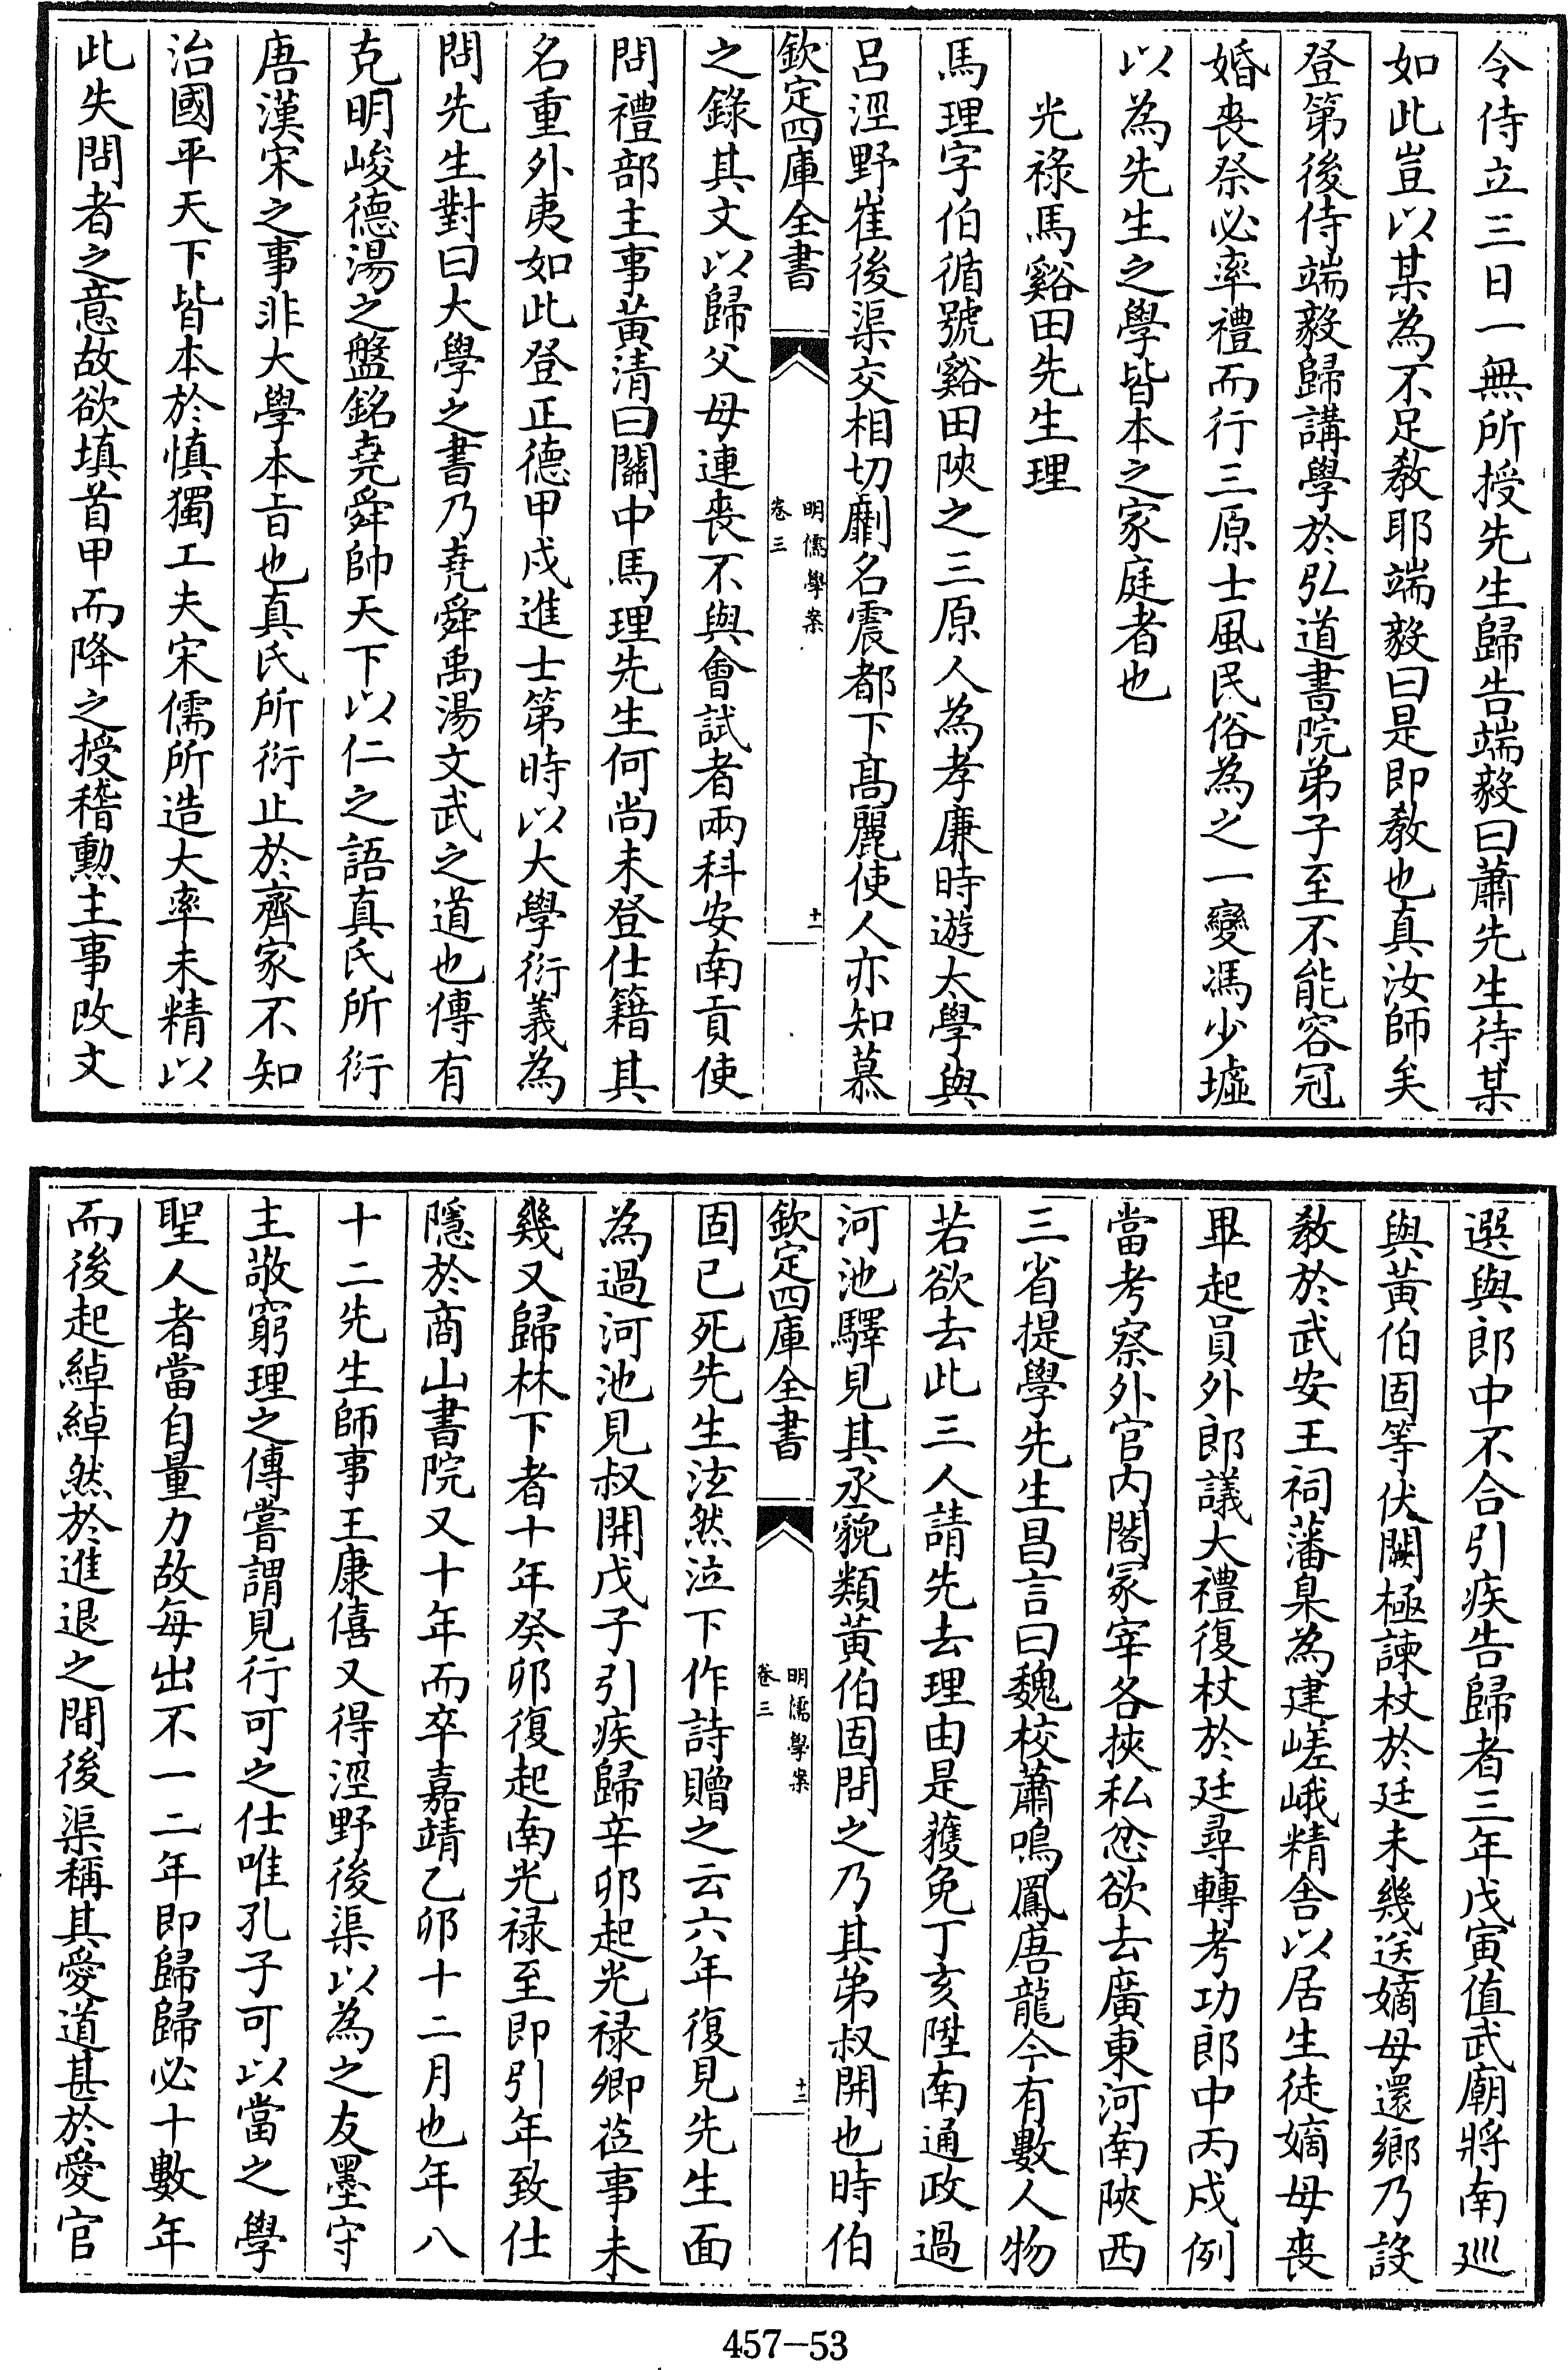 令侍立三日一無所授先生歸告端毅曰蕭先生待某
如此豈以某為不足教耶端毅曰是即教也真汝師矣
登第後侍端毅歸講學於弘道書院弟子至不能容冠
婚喪祭必率禮而行三原士風民俗為之一變馮少墟
以為先生之學皆本之家庭者也
光祿馬谿田先生理
馬理字伯循號谿田陜之三原人為孝廉時遊太學與
呂涇野崔後渠交相切劘名震都下髙麗使人亦知慕
欽定四庫全書
明儒學案
卷三
十一
之錄其文以歸父母連喪不與會試者兩科安南貢使
問禮部主事黃清曰關中馬理先生何尚未登仕籍其
名重外夷如此登正德甲戌進士第時以大學衍義為
問先生對曰大學之書乃堯舜禹湯文武之道也傳有
克明峻德湯之盤銘堯舜帥天下以仁之語真氏所衍
唐漢宋之事非大學本旨也真氏所衍止於齊家不知
治國平天下皆本於慎獨工夫宋儒所造大率未精以
此失問者之意故欲填首甲而降之授稽勲主事改文
選與郎中不合引疾告歸者三年戊寅值武廟將南巡
與黃伯固等伏闕極諫杖於廷未幾送嫡母還鄉乃設
教於武安王祠藩臬為建嵯峨精舍以居生徒嫡母喪
畢起員外郎議大禮復杖於廷尋轉考功郎中丙戌例
當考察外官内閣冡宰各挾私忿欲去廣東河南陜西
三省提學先生昌言曰魏校蕭鳴鳳唐龍今有數人物
若欲去此三人請先去理由是獲免丁亥陞南通政過
河池驛見其丞貌類黃伯固問之乃其弟叔開也時伯
欽定四庫全書
明儒學案
卷三
十二
固已死先生泫然泣下作詩贈之云六年復見先生面
為過河池見叔開戊子引疾歸辛卯起光禄卿莅事未
幾又歸林下者十年癸卯復起南光禄至即引年致仕
隱於商山書院又十年而卒嘉靖乙卯十二月也年八
十二先生師事王康僖又得涇野後渠以為之友墨守
主敬窮理之傳嘗謂見行可之仕唯孔子可以當之學
聖人者當自量力故每出不一二年即歸歸必十數年
而後起綽綽然於進退之間後渠稱其愛道甚於愛官
457-53